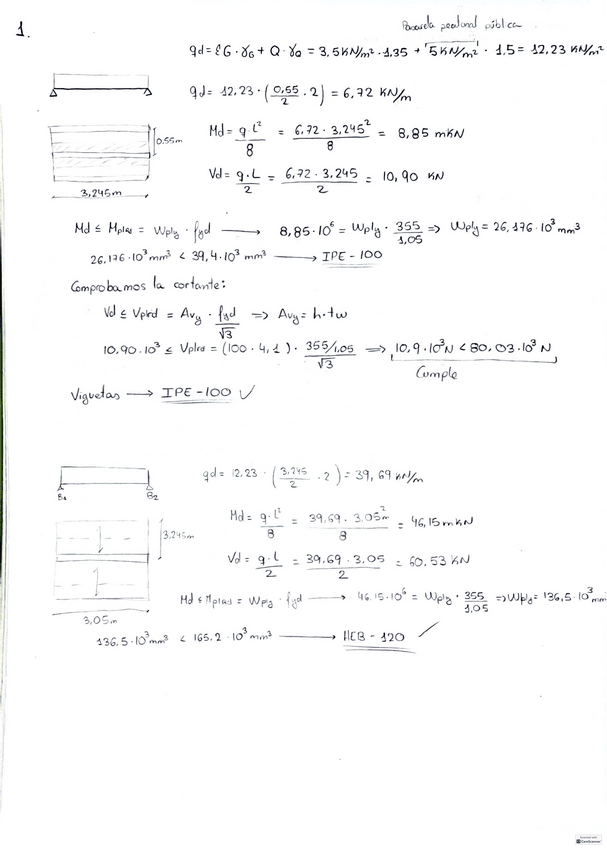 1.
Pasarela peatonal pública
qd = ΣG · γG + Q · γQ = 3,5 KN/m² · 1,35 + 5 KN/m² · 1,5 = 12,23 KN/m²
qd = 12,23 · (0,55/2 · 2) = 6,72 KN/m
0.55m
3,245m
Md = q·L²/8 = 6,72 · 3,245²/8 = 8,85 mKN
Vd = q·L/2 = 6,72 · 3,245/2 = 10,90 KN
Md ≤ Mplas = Wply · fyd → 8,85·10⁶ = Wply · 355/1,05 => Wply = 26,176·10³ mm³
26,176·10³ mm³ < 39,4·10³ mm³ → IPE-100
Comprobamos la cortante:
Vd ≤ Vplrd = Avy · fyd/√3 => Avy = h·tw
10,90·10³ ≤ Vplrd = (100 · 4,1) · 355/1,05/√3 => 10,9·10³N < 80,03·10³ N
Cumple
Viguetas → IPE-100 ✓
qd = 12,23 · (3,245/2 · 2) = 39,69 KN/m
B1
B2
3,245m
3,05m
Md = q·L²/8 = 39,69 · 3,05m²/8 = 46,15 mKN
Vd = q·L/2 = 39,69 · 3,05/2 = 60,53 KN
Md ≤ Mplas = Wply · fyd → 46,15·10⁶ = Wply · 355/1,05 => Wply = 136,5·10³ mm³
136,5·10³ mm³ < 165,2·10³ mm³ → HEB-120 ✓
CamScanner